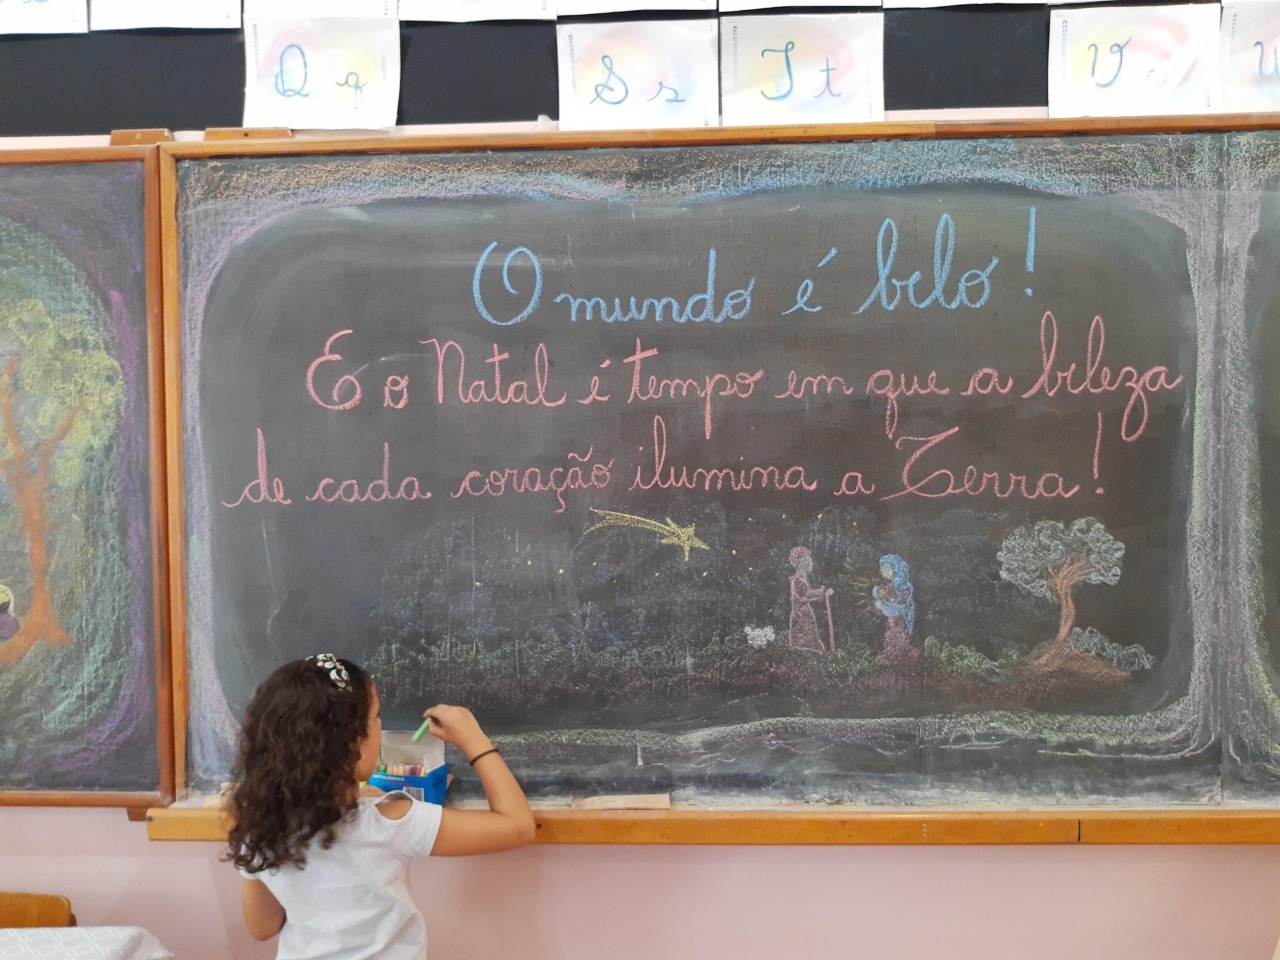 Q q
S s
T t
V
O mundo é belo!
E o Natal é tempo em que a beleza
de cada coração ilumina a Terra!